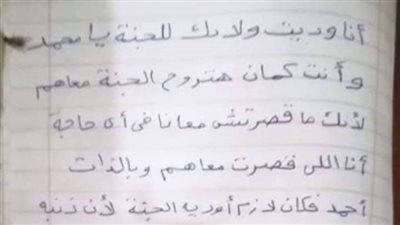 أنا وديت ولادك للجنة يا محمد
وأنت كمان هتروح الجنة معاهم
لأنك ما قصرتش معانا في أى حاجة
أنا اللى قصرت معاهم وبالذات
أحمد فكان لازم أوديه الجنة لأن ذنبه